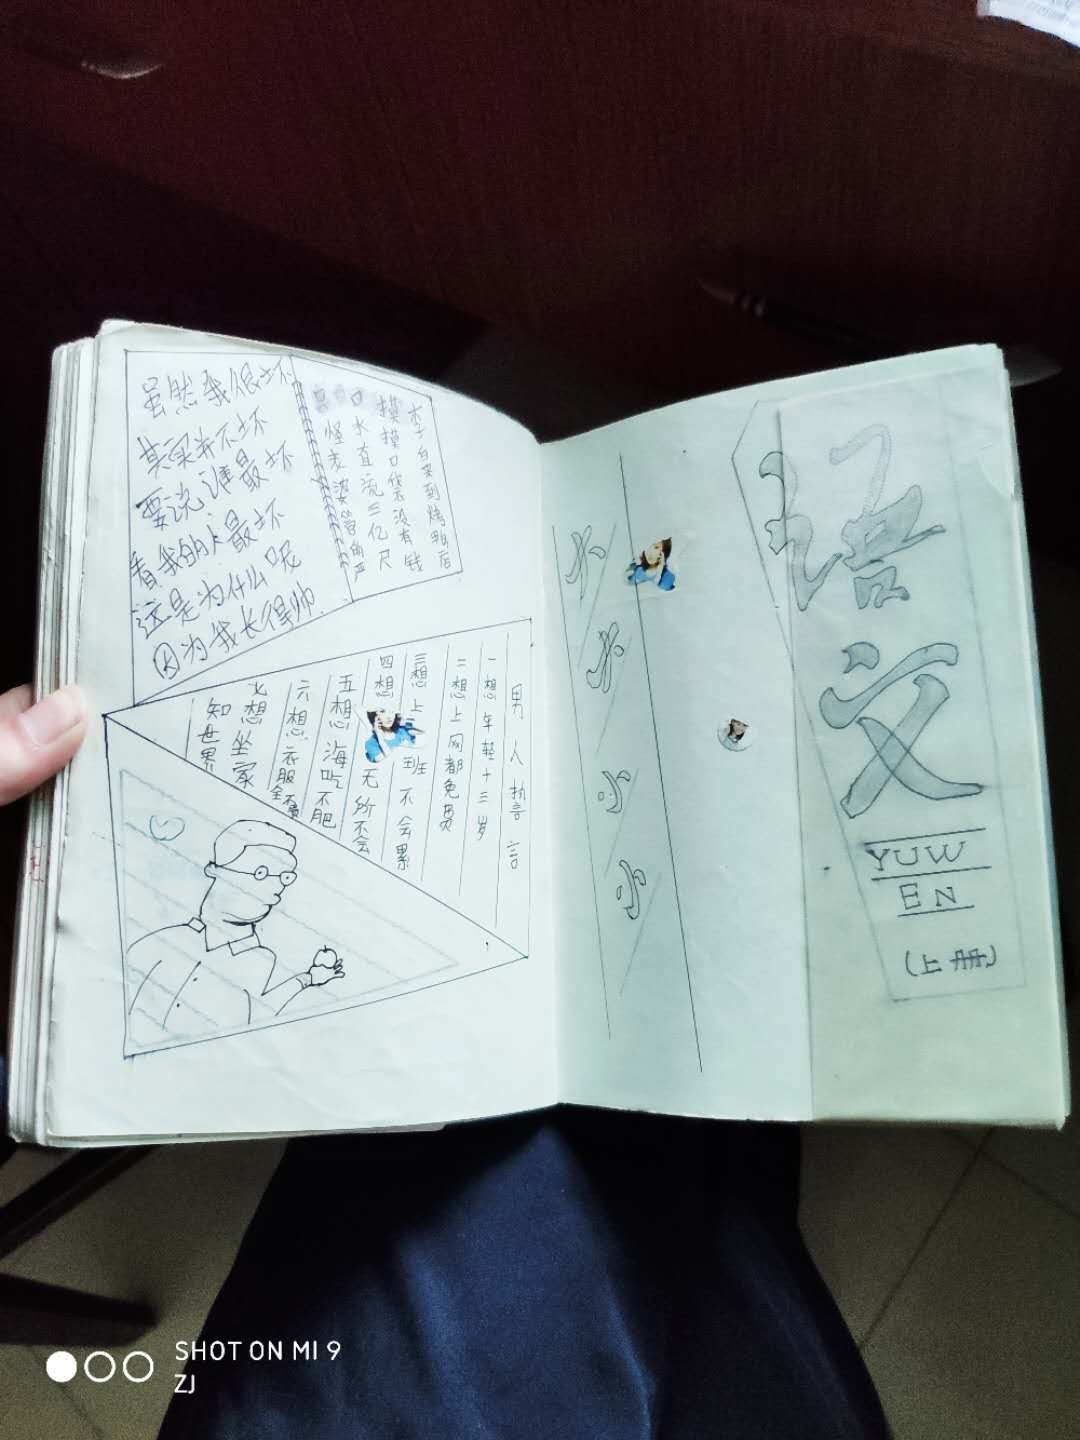 虽然我很坏
其实并不坏
要说谁最坏
看我的人最坏
这是为什么呢
因为我长得帅
李白来到烤鸭店
摸摸口袋没有钱
口水直流三亿尺
怪老婆管严
男人誓言
一想年轻十三岁
二想上网都免费
三想上班不会累
四想无所不会
五想海吃不肥
六想衣服全不贵
七想坐家
知世界
小小
语文
YUW
EN
(上册)
SHOT ON MI 9
ZJ